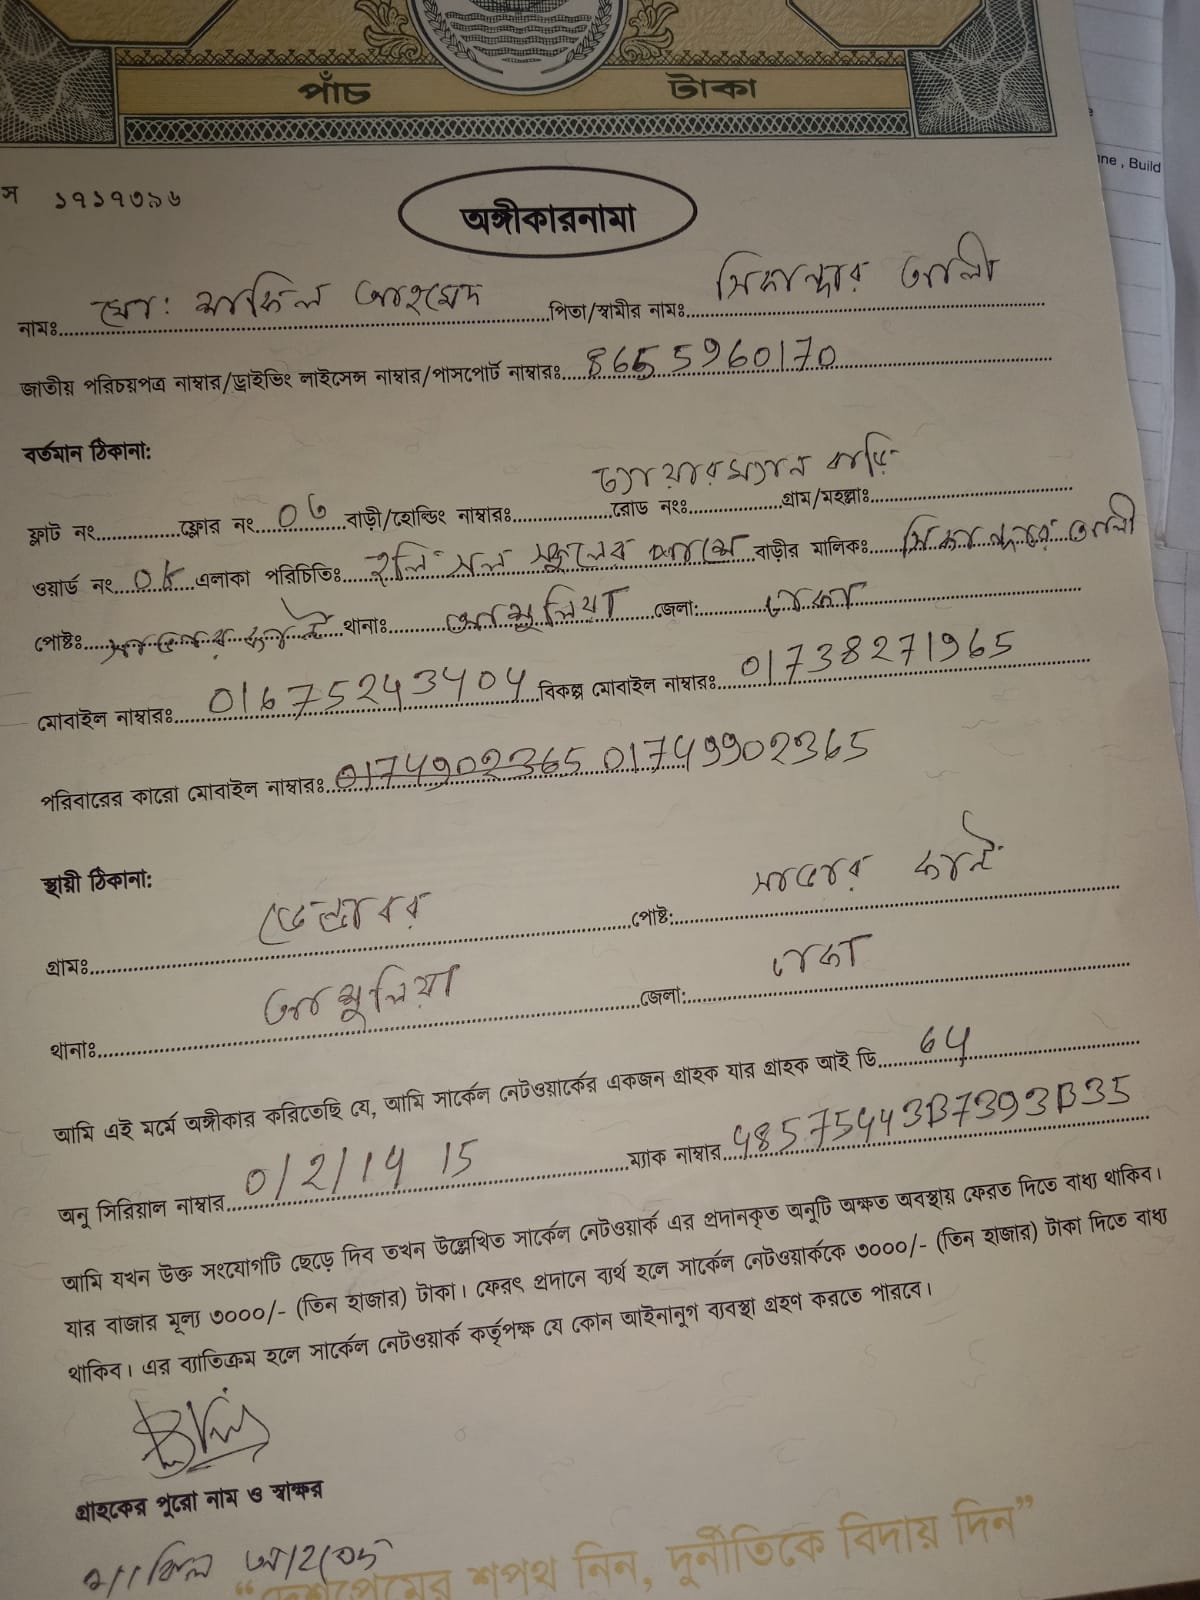 পাঁচ টাকা
স ১৭১৭৩৯৬
অঙ্গীকারনামা
নামঃ মো: শাকিল আহমেদ পিতা/স্বামীর নামঃ সিকান্দার আলী
জাতীয় পরিচয়পত্র নাম্বার/ড্রাইভিং লাইসেন্স নাম্বার/পাসপোর্ট নাম্বারঃ 8655960170
বর্তমান ঠিকানা:
ফ্লাট নং ফ্লোর নং 06 বাড়ী/হোল্ডিং নাম্বারঃ রোড নংঃ গ্রাম/মহল্লাঃ চ্যায়ারম্যান বাড়ি
ওয়ার্ড নং এলাকা পরিচিতিঃ স্কুলের পাশে বাড়ীর মালিকঃ সিকান্দার আলী
পোষ্টঃ থানাঃ আশুলিয়া জেলা: ঢাকা
মোবাইল নাম্বারঃ 01675243404 বিকল্প মোবাইল নাম্বারঃ 01738271965
পরিবারের কারো মোবাইল নাম্বারঃ 01749902365 01749902365
স্থায়ী ঠিকানা:
গ্রামঃ পোষ্ট:
থানাঃ আশুলিয়া জেলা: ঢাকা
আমি এই মর্মে অঙ্গীকার করিতেছি যে, আমি সার্কেল নেটওয়ার্কের একজন গ্রাহক যার গ্রাহক আই ডি 64
অনু সিরিয়াল নাম্বার 0/2/14 15 ম্যাক নাম্বার 48575443B7393B35
আমি যখন উক্ত সংযোগটি ছেড়ে দিব তখন উল্লেখিত সার্কেল নেটওয়ার্ক এর প্রদানকৃত অনুটি অক্ষত অবস্থায় ফেরত দিতে বাধ্য থাকিব।
যার বাজার মূল্য ৩০০০/- (তিন হাজার) টাকা। ফেরৎ প্রদানে ব্যর্থ হলে সার্কেল নেটওয়ার্ককে ৩০০০/- (তিন হাজার) টাকা দিতে বাধ্য
থাকিব। এর ব্যাতিক্রম হলে সার্কেল নেটওয়ার্ক কর্তৃপক্ষ যে কোন আইনানুগ ব্যবস্থা গ্রহণ করতে পারবে।
গ্রাহকের পুরো নাম ও স্বাক্ষর
শাকিল আহমেদ
“দেশপ্রেমের শপথ নিন, দুর্নীতিকে বিদায় দিন”